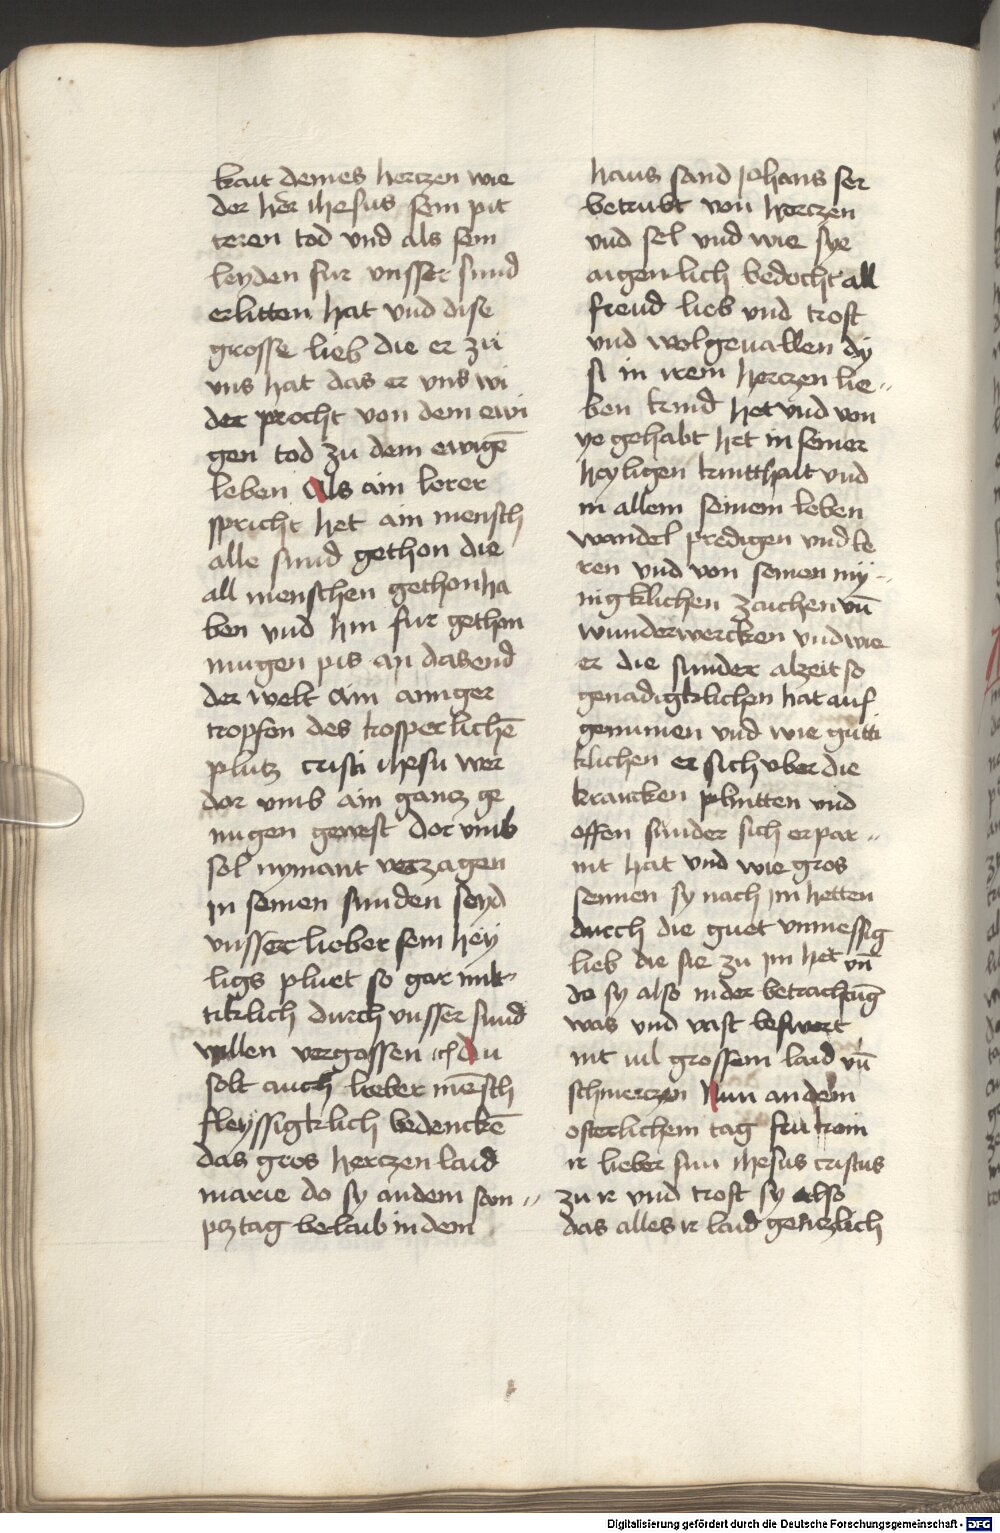 kait deines hertzen wie
der her ihesus sein pit
teren tod vnd als sein
leyden fur vnsser sund
erlitten hat vnd dise
grosse lieb die er zu
vns hat das er vns wi
der procht von dem ewi
gen tod zu dem ewigē
leben Als ain lerer
spricht het ain mensch
alle sund gethon die
all menschen gethon ha
ben vnd hin fur gethon
mugen pis an das end
der welt ain ainiger
tropfen des kosperlichē
plutz cristi ihesu wer
dor vmb ain gantz ge
nugen gewest dor vmb
sol nymant verzagen
in seinen sunden seyd
vnsser lieber sein hey
ligs pluet so gar milt
tiklich durch vnsser sund
willen vergossen ich Du
solt auch lieber mēsch
fleyssigklich bedenckē
das gros hertzen laid
marie do sy an dem sam
pztag belaub in dem
haus sand johans ser
betrubt von hertzen
vnd sel vnd wie sye
aigenlich bedocht all
freud lieb vnd trost
vnd wolgeuallen dy
si in irem hertzen lie
ben kind het vnd von
ye gehabt het in seiner
heyligen kintthait vnd
in allem seinem leben
wandel predigen vnd le
ren vnd von seinen my
nigklichen zaichen vn̄
wunderwercken vnd wie
er die sunder alzeit so
genadigklichen hat auf
genumen vnd wie gutti
klichen er sich vber die
krancken plintten vnd
offen sunder sich erpar
mt hat vnd wie gros
sennen sy nach im hetten
durch die guet vnmessig
lieb die sie zu im het vn̄
do sy also in der betrachtūg
was vnd vast beswert
mit vil grossem laid vn̄
schmerczen Nun an dem
osterlichem tag fru kom
ir lieber sun ihesus cristus
zu ir vnd trost sy also
das alles ir laid gentzlich
Digitalisierung gefördert durch die Deutsche Forschungsgemeinschaft - DFG